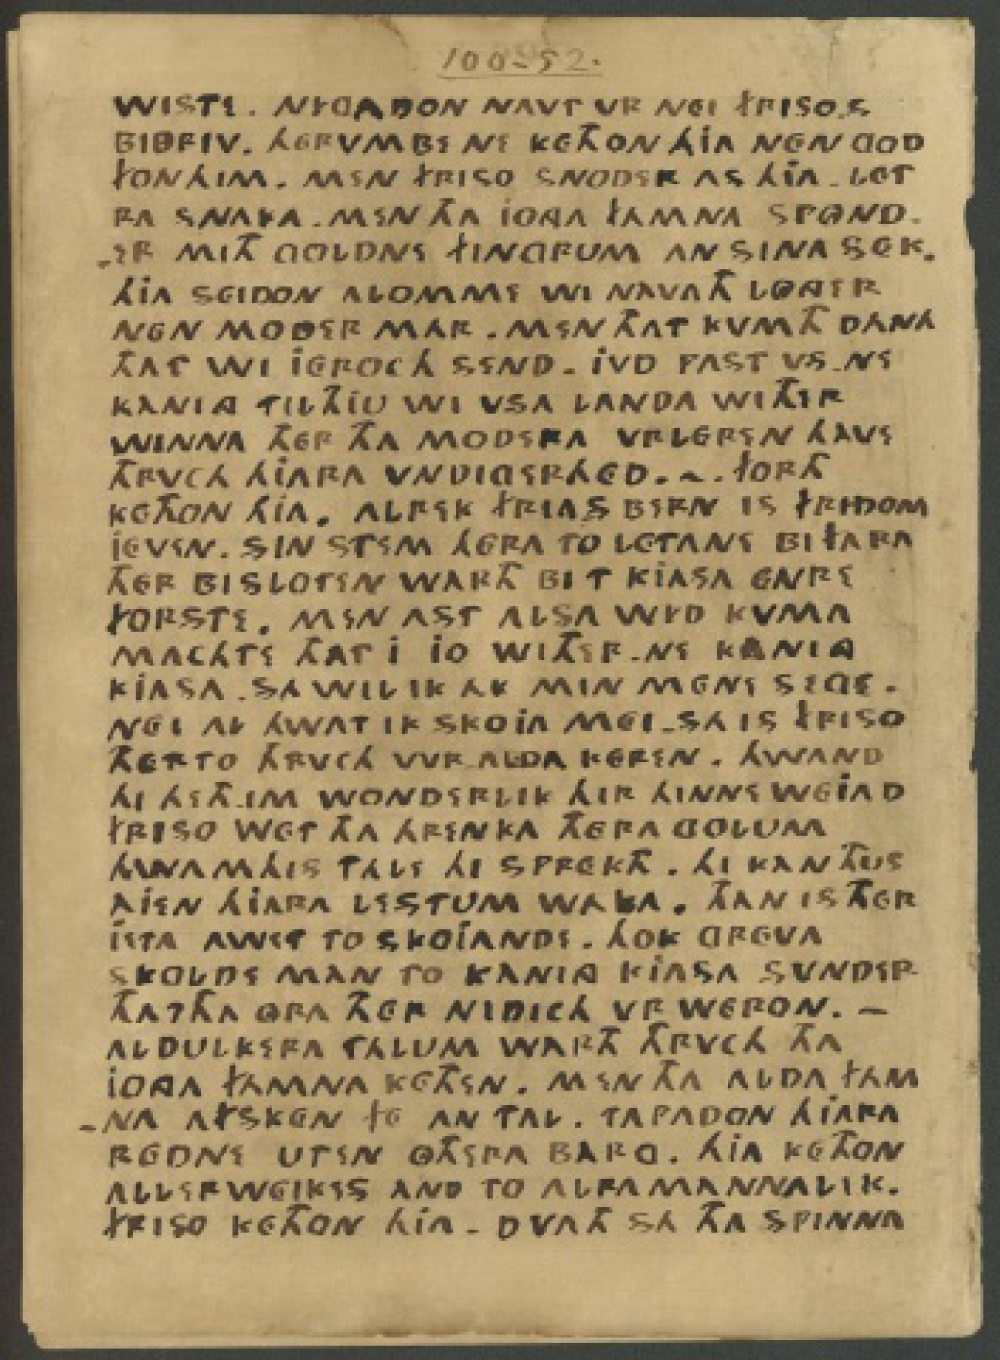 WISTE. NYGADON NAVT VR NEI FRISO.S
BIDRIV. HERVMBE NE KETHON HJA NEN GOD
FON HIM. MEN FRISO SNODER AS HJA. LET
RA SNAKA. MEN THA JONGA FAMNA SPOND-
-ER MITH GOLDNE FINGRUM AN SINA SEK.
HJA SEIDON ALOMME WI NAVATH LONGER
NEN MODER MAR. MEN THAT KVMTH DANA
THAT WI JEROCH SEND. JVD PAST VS NE
KANING TILTHJU WI VSA LANDA WITHER
WINNA THER THA MODERA VRLEREN HAVE
THRVCH HJARA VNDIGERHED. ~. FORTH
KETHON HJA. ALREK FRJAS BERN IS FRIDOM
JEVEN. SIN STEM HERA TO LETANE BI FARA
THER BISLOTEN WARTH BI T KJASA ENRE
FORSTE. MEN AST ALSA WYD KVMA
MACHTE THAT I JO WITHER NE KANING
KJASA. SA WIL IK AK MIN MENE SEGE.
NEI AL HWAT IK SKOJA MEI. SA IS FRISO
THERTO THRVCH WR.ALDA KEREN. HWAND
HI HETH IM WONDERLIK HIR HINNE WEIAD
FRISO WET THA HRENKA THERA GOLUM
HWAM HIS TALE HI SPREKTH. HI KAN THUS
AJEN HJARA LESTUM WAKA. THAN IS THER
JETA AWET TO SKOJANDE. HOK GREVA
SKOLDE MAN TO KANING KJASA SUNDER
THAT THA ORA THER NIDICH VR WERON. —
ALDULKERA TALUM WARTH THRVCH THA
JONGA FAMNA KETHEN. MEN THA ALDA FAM
-NA AFSKEN FE AN TAL. TAPADON HJARA
REDNE UTEN OTHERA BARG. HJA KETHON
ALLERWEIKES AND TO ALRA MANNALIK.
FRISO KETHON HJA. DVATH SA THA SPINNA